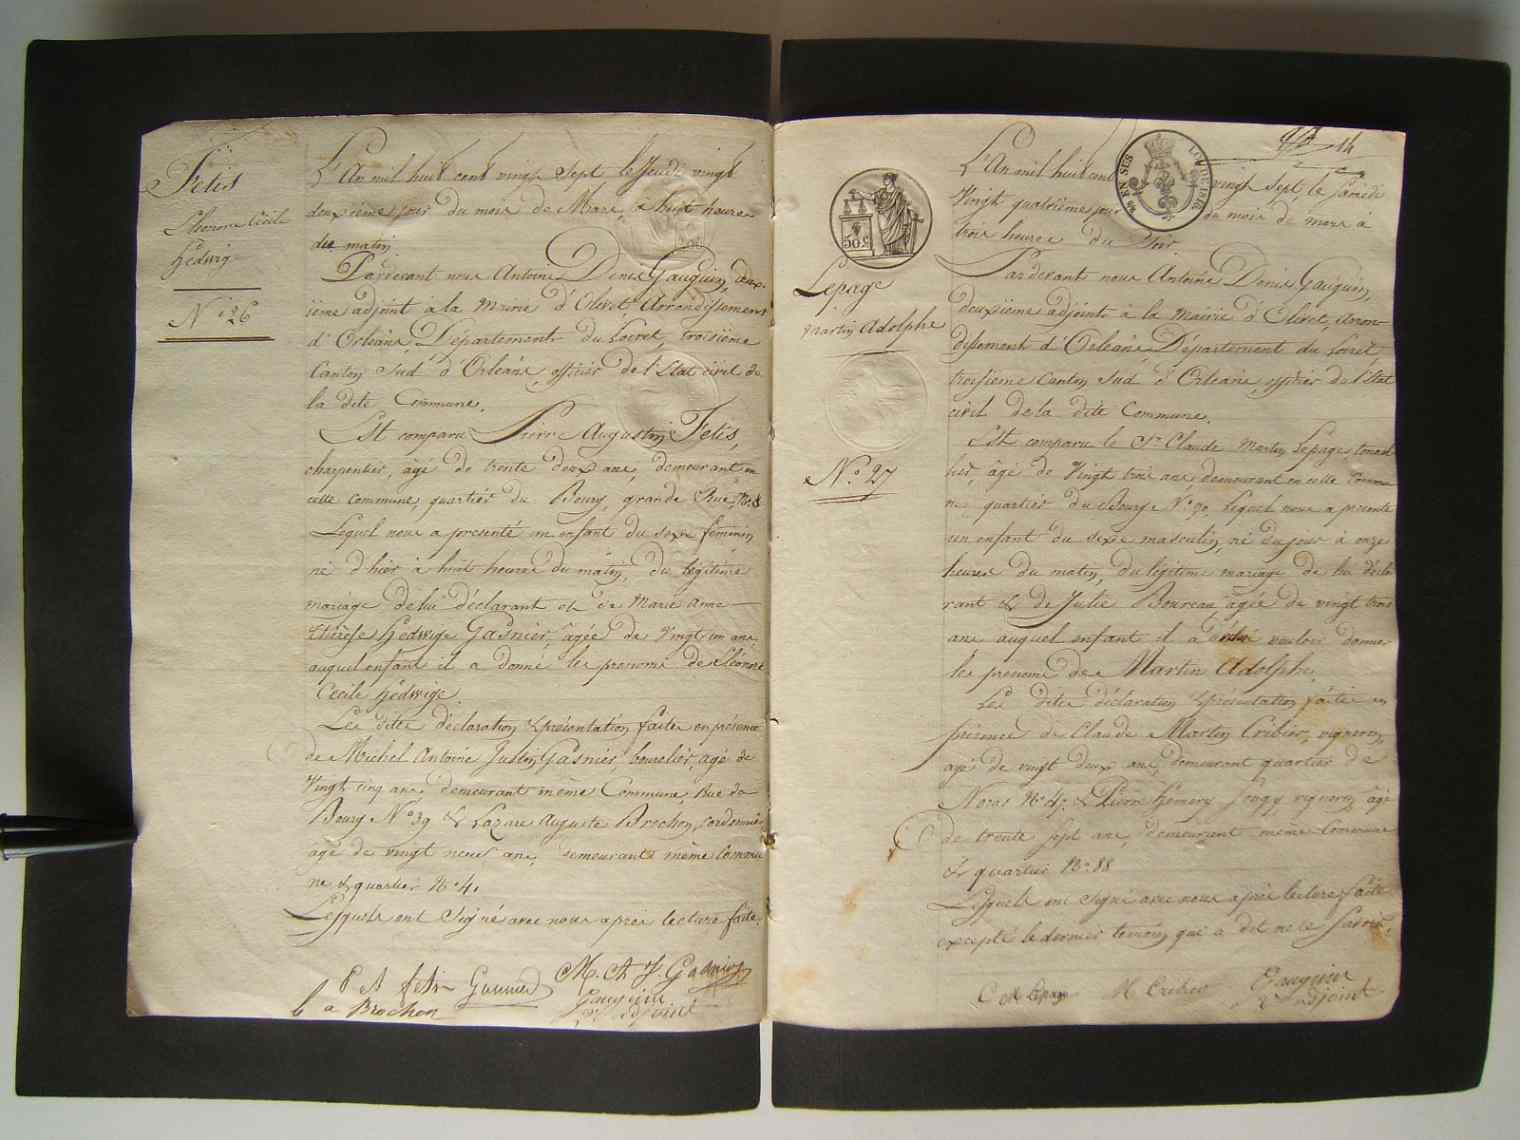 Fetis
Eléonore Cécile
hédwige
N° 26
L'An mil huit cent vingt Sept le Jeudi vingt
deuxième jour du mois de Mars, à huit heures
du matin
Pardevant nous Antoine Denis Gauguin, deux-
ième adjoint à la Mairie d'Olivet, Arrondissement
d'Orléans, Département du Loiret, troisième
Canton Sud d'Orléans, officier de l'Etat civil de
la dite Commune.
Est comparu Pierre Augustin Fetis,
charpentier, âgé de trente deux ans, demeurant en
cette commune, quartier du Bourg, grande Rue, N° 8
Lequel nous a presenté un enfant du sexe féminin,
né d'hier à huit heures du matin, du légitime
mariage de lui déclarant et de Marie anne
thérèse hédwige Gasnier, âgée de Vingt un ans,
auquel enfant il a donné les prenoms de Eléonore
Cécile hédwige
Les dites déclaration & présentation faites en présence
de Michel Antoine Justin Gasnier, bourelier, âgé de
Vingt cinq ans, demeurant même Commune, Rue du
Bourg N° 39 & Lazare Auguste Brochon, cordonnier
âgé de vingt neuf ans, demeurants même Commu
ne & quartier N° 4.
Lesquels ont Signé avec nous après lecture faite.
P A fetis M. A J. Gasnier
a Brochon Gauguin
adjoint
14
Lepage
Martin Adolphe
N° 27
L'An mil huit cent vingt Sept, le Samedi
Vingt quatrième jour du mois de mars à
trois heures du Soir
Pardevant nous Antoine Denis Gauguin,
deuxième adjoint à la Mairie d'Olivet, arron-
dissement d'Orléans Département du Loiret,
troisième Canton Sud d'Orléans officier de l'Etat
civil de la dite Commune.
Est comparu le Sr Claude Martin Lepage, tonnel-
lier, âgé de Vingt trois ans demeurant en cette Commu
ne, quartier du Bourg N° 90, Lequel nous a présenté
un enfant du sexe masculin, né du jour à onze
heures du matin, du légitime mariage de lui décla
rant & de Julie Boureau âgée de vingt trois
ans auquel enfant il a vouloir donner
les prénoms de Martin Adolphe.
Les dites déclaration & présentation faites en
présence de Claude Martin Cribier, vigneron,
agé de vingt deux ans, demeurant quartier de
N° 47 & Pierre hémery vigneron âgé
de trente sept ans, demeurant même Commune
& quartier N° 88
Lesquels ont signé avec nous après lecture faite
excepté le dernier temoin qui a dit ne le Savoir.
C M Lepage M Cribier Gauguin
adjoint